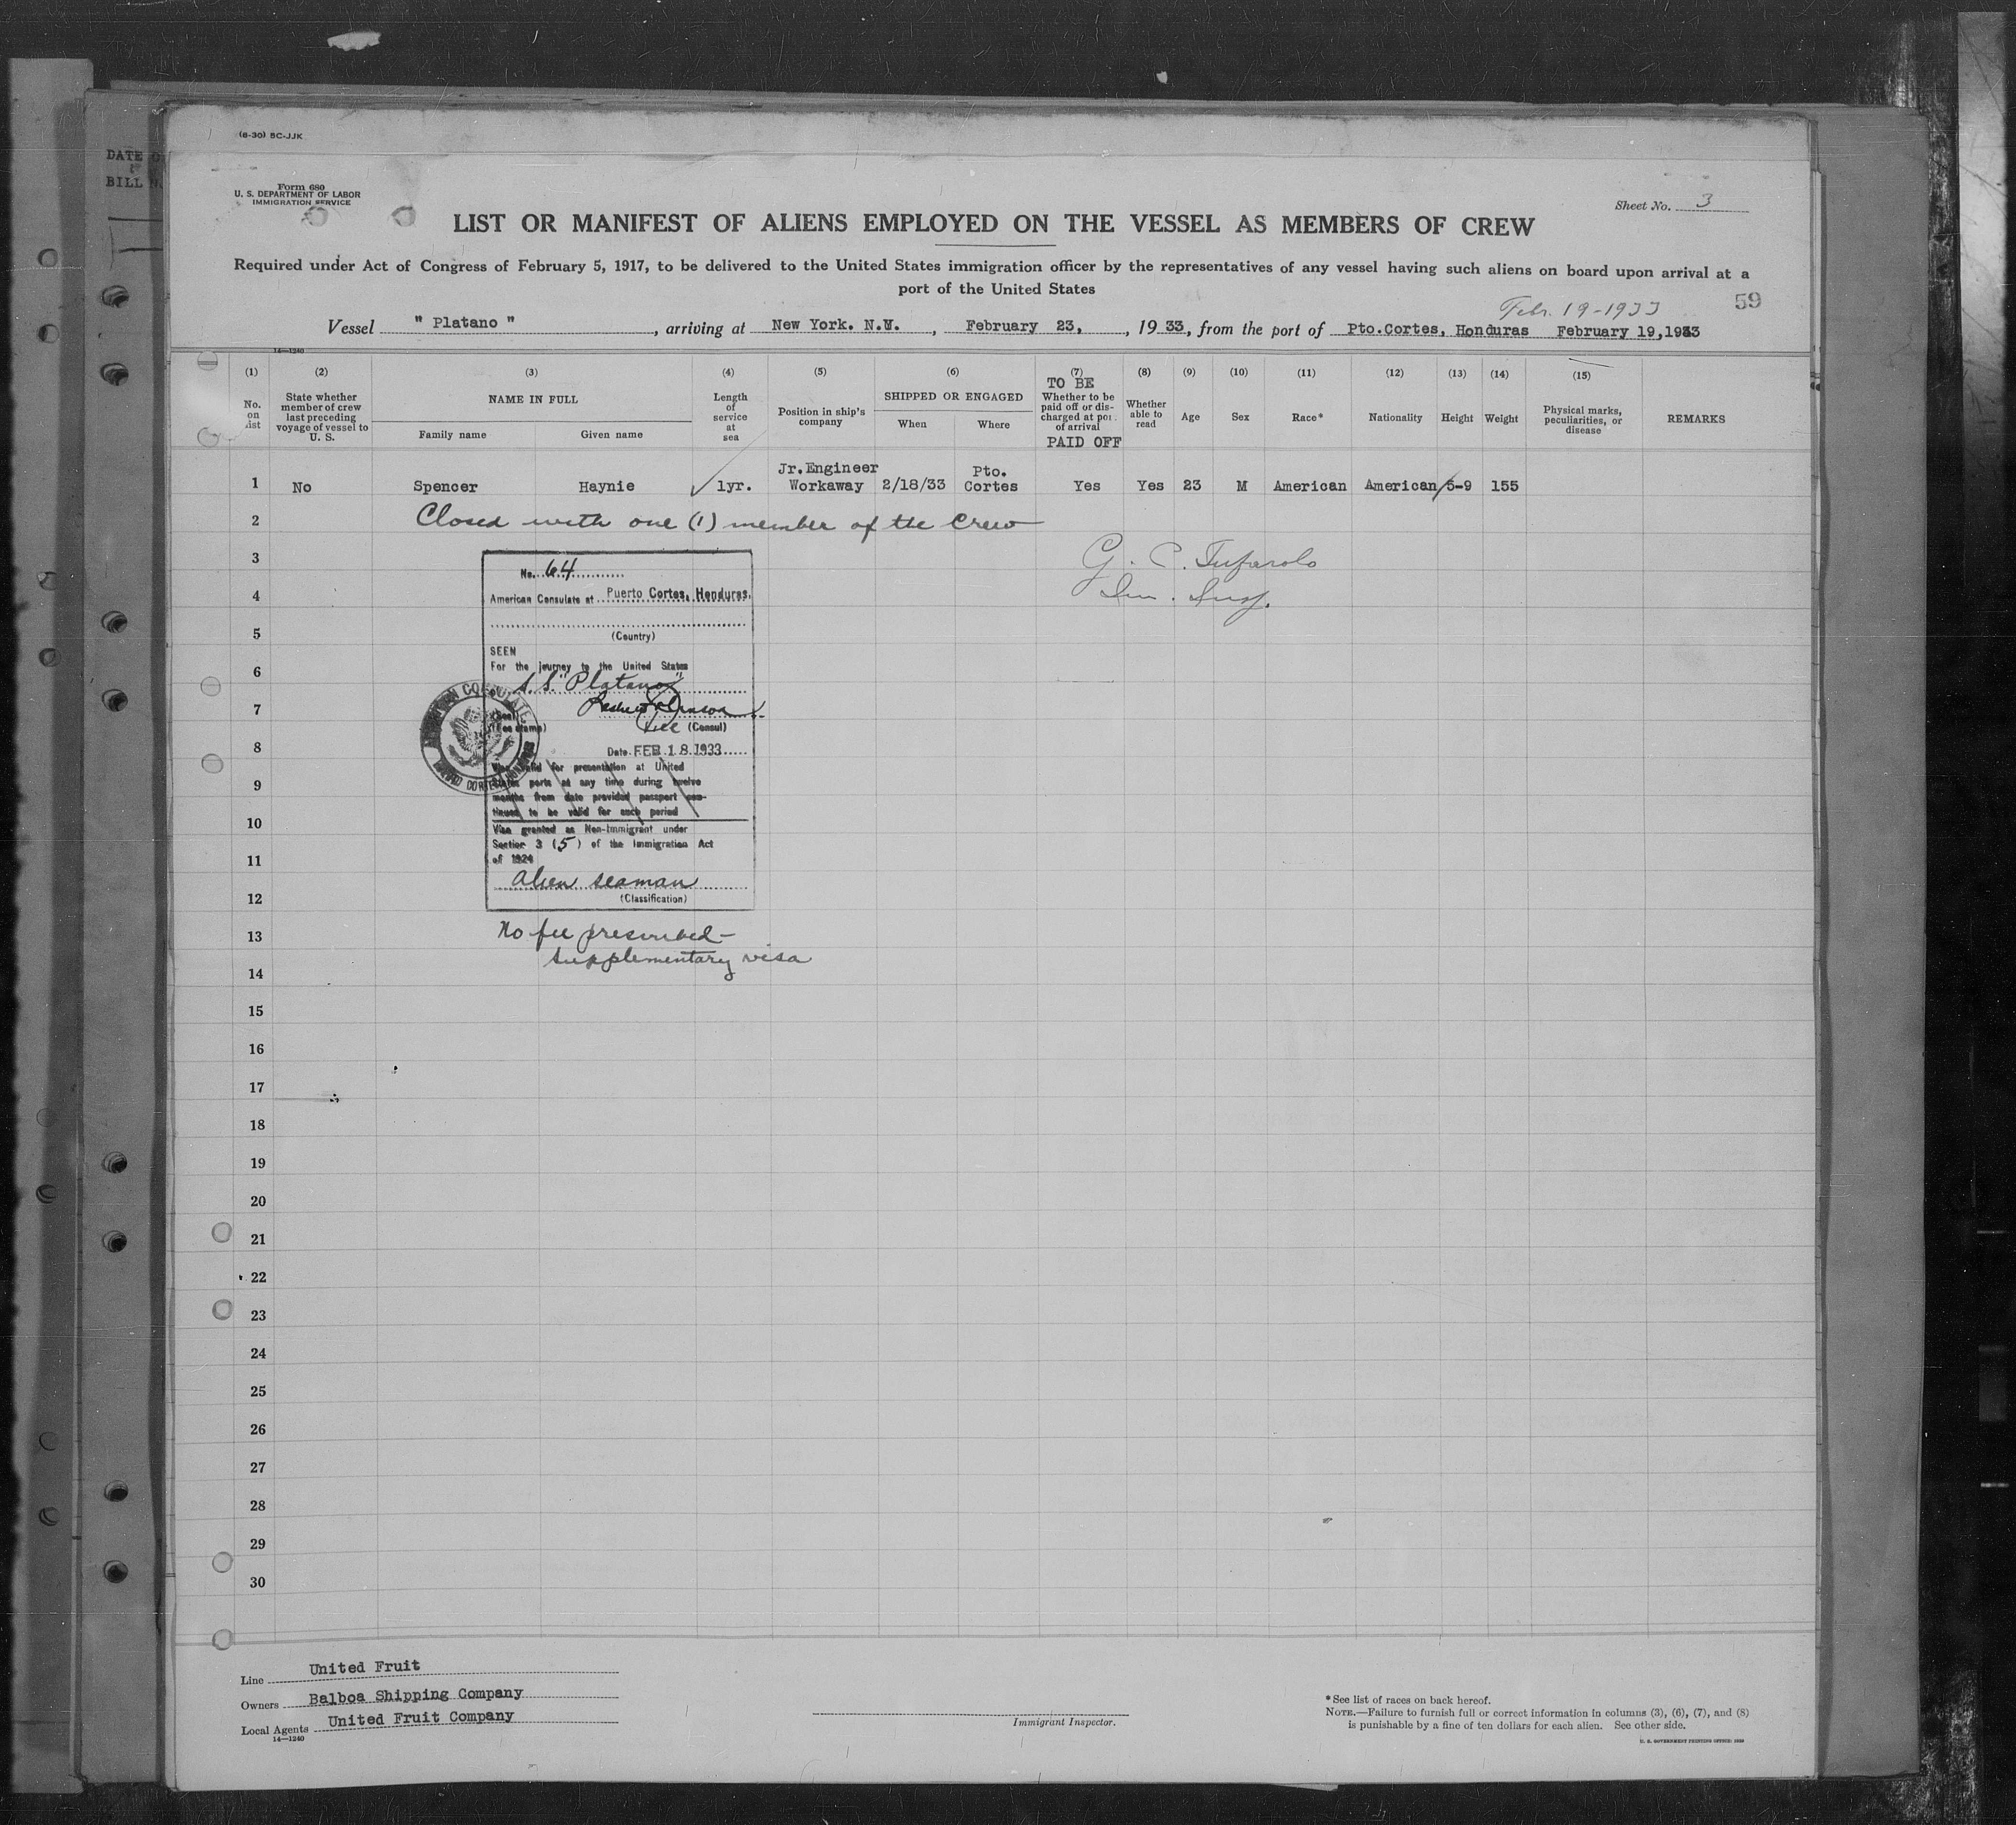 (8-30) BC-JJK
DATE O
BILL N
Form 680
U. S. DEPARTMENT OF LABOR
IMMIGRATION SERVICE
Sheet No. 3
LIST OR MANIFEST OF ALIENS EMPLOYED ON THE VESSEL AS MEMBERS OF CREW
Required under Act of Congress of February 5, 1917, to be delivered to the United States immigration officer by the representatives of any vessel having such aliens on board upon arrival at a
port of the United States
Febr. 19-1933
59
Vessel " Platano ", arriving at New York. N.Y., February 23,, 19 33, from the port of Pto.Cortes, Honduras February 19,1933
14—1240
(1) (2) (3) (4) (5) (6) (7) (8) (9) (10) (11) (12) (13) (14) (15)
No. on list
State whether member of crew last preceding voyage of vessel to U. S.
NAME IN FULL
Family name Given name
Length of service at sea
Position in ship's company
SHIPPED OR ENGAGED
When Where
TO BE
Whether to be paid off or discharged at port of arrival
PAID OFF
Whether able to read
Age
Sex
Race*
Nationality
Height
Weight
Physical marks, peculiarities, or disease
REMARKS
1 No Spencer Haynie 1yr. Jr.Engineer Workaway 2/18/33 Pto. Cortes Yes Yes 23 M American American 5-9 155
2 Closed with one (1) member of the Crew
3 G. C. Tufarolo
4 Im. Insp.
5
6
7
8
9
10
11
12
13
14
15
16
17
18
19
20
21
22
23
24
25
26
27
28
29
30
No. 64
American Consulate at Puerto Cortes, Honduras.
(Country)
SEEN
For the journey to the United States
S.S. "Platano"
Vice (Consul)
Date FEB 18 1933
Visa valid for presentation at United
States ports at any time during twelve
months from date provided passport con-
tinues to be valid for such period
Visa granted as Non-Immigrant under
Section 3 (5) of the Immigration Act
of 1924
Alien seaman
(Classification)
No fee prescribed—
Supplementary visa
Line United Fruit
Owners Balboa Shipping Company
Local Agents United Fruit Company
14—1240
Immigrant Inspector.
*See list of races on back hereof.
NOTE.—Failure to furnish full or correct information in columns (3), (6), (7), and (8)
is punishable by a fine of ten dollars for each alien. See other side.
U. S. GOVERNMENT PRINTING OFFICE: 1930